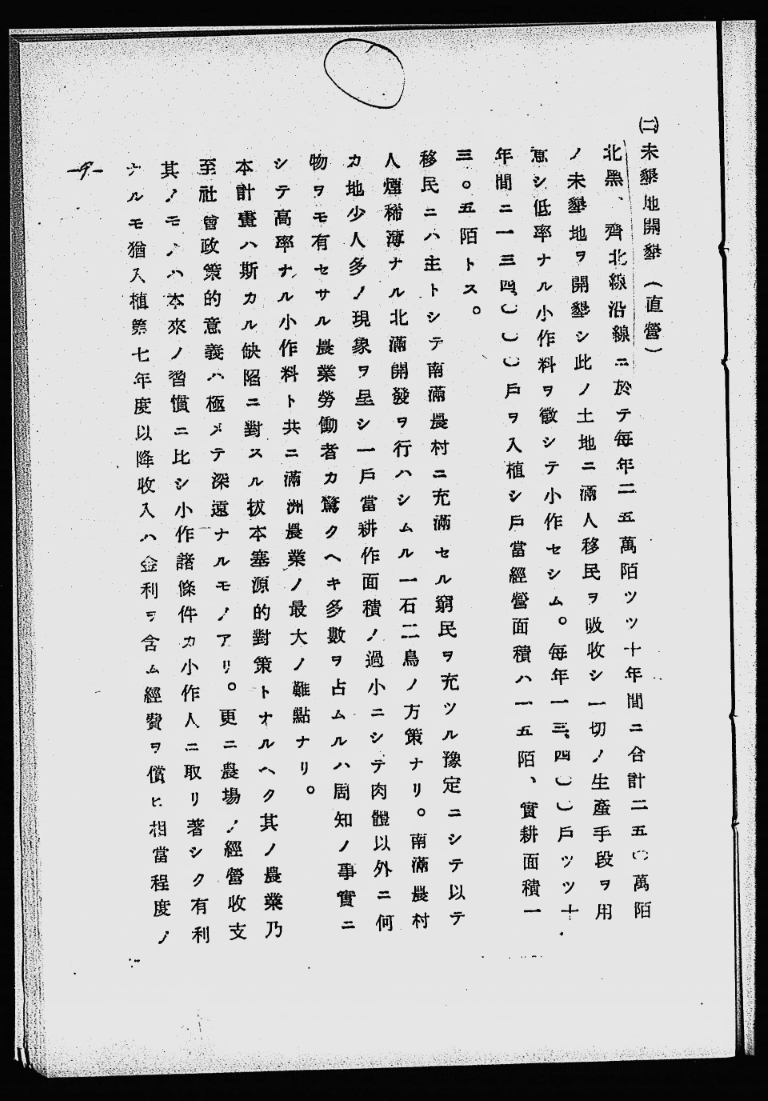 ㈡未墾地開墾(直營)
北黑、齊北線沿線ニ於テ每年二五萬陌ツツ十年間ニ合計二五〇萬陌
ノ未墾地ヲ開墾シ此ノ土地ニ滿人移民ヲ吸收シ一切ノ生產手段ヲ用
意シ低率ナル小作料ヲ徵シテ小作セシム。每年一三、四〇〇戶ツツ十
年間ニ一三四、〇〇〇戶ヲ入植シ戶當經營面積ハ一五陌、實耕面積一
三・〇五陌トス。
移民ニハ主トシテ南滿農村ニ充滿セル窮民ヲ充ツル豫定ニシテ以テ
人煙稀薄ナル北滿開發ヲ行ハシムル一石二鳥ノ方策ナリ。南滿農村
カ地少人多ノ現象ヲ呈シ一戶當耕作面積ノ過小ニシテ肉體以外ニ何
物ヲモ有セサル農業勞働者カ驚クヘキ多數ヲ占ムルハ周知ノ事實ニ
シテ高率ナル小作料ト共ニ滿洲農業ノ最大ノ難點ナリ。
本計畫ハ斯カル缺陷ニ對スル拔本塞源的對策トナルヘク其ノ農業乃
至社會政策的意義ハ極メテ深遠ナルモノアリ。更ニ農場ノ經營收支
其ノモノハ本來ノ習慣ニ比シ小作諸條件カ小作人ニ取リ著シク有利
ナルモ猶入植第七年度以降收入ハ金利ヲ含ム經費ヲ償ヒ相當程度ノ
-9-